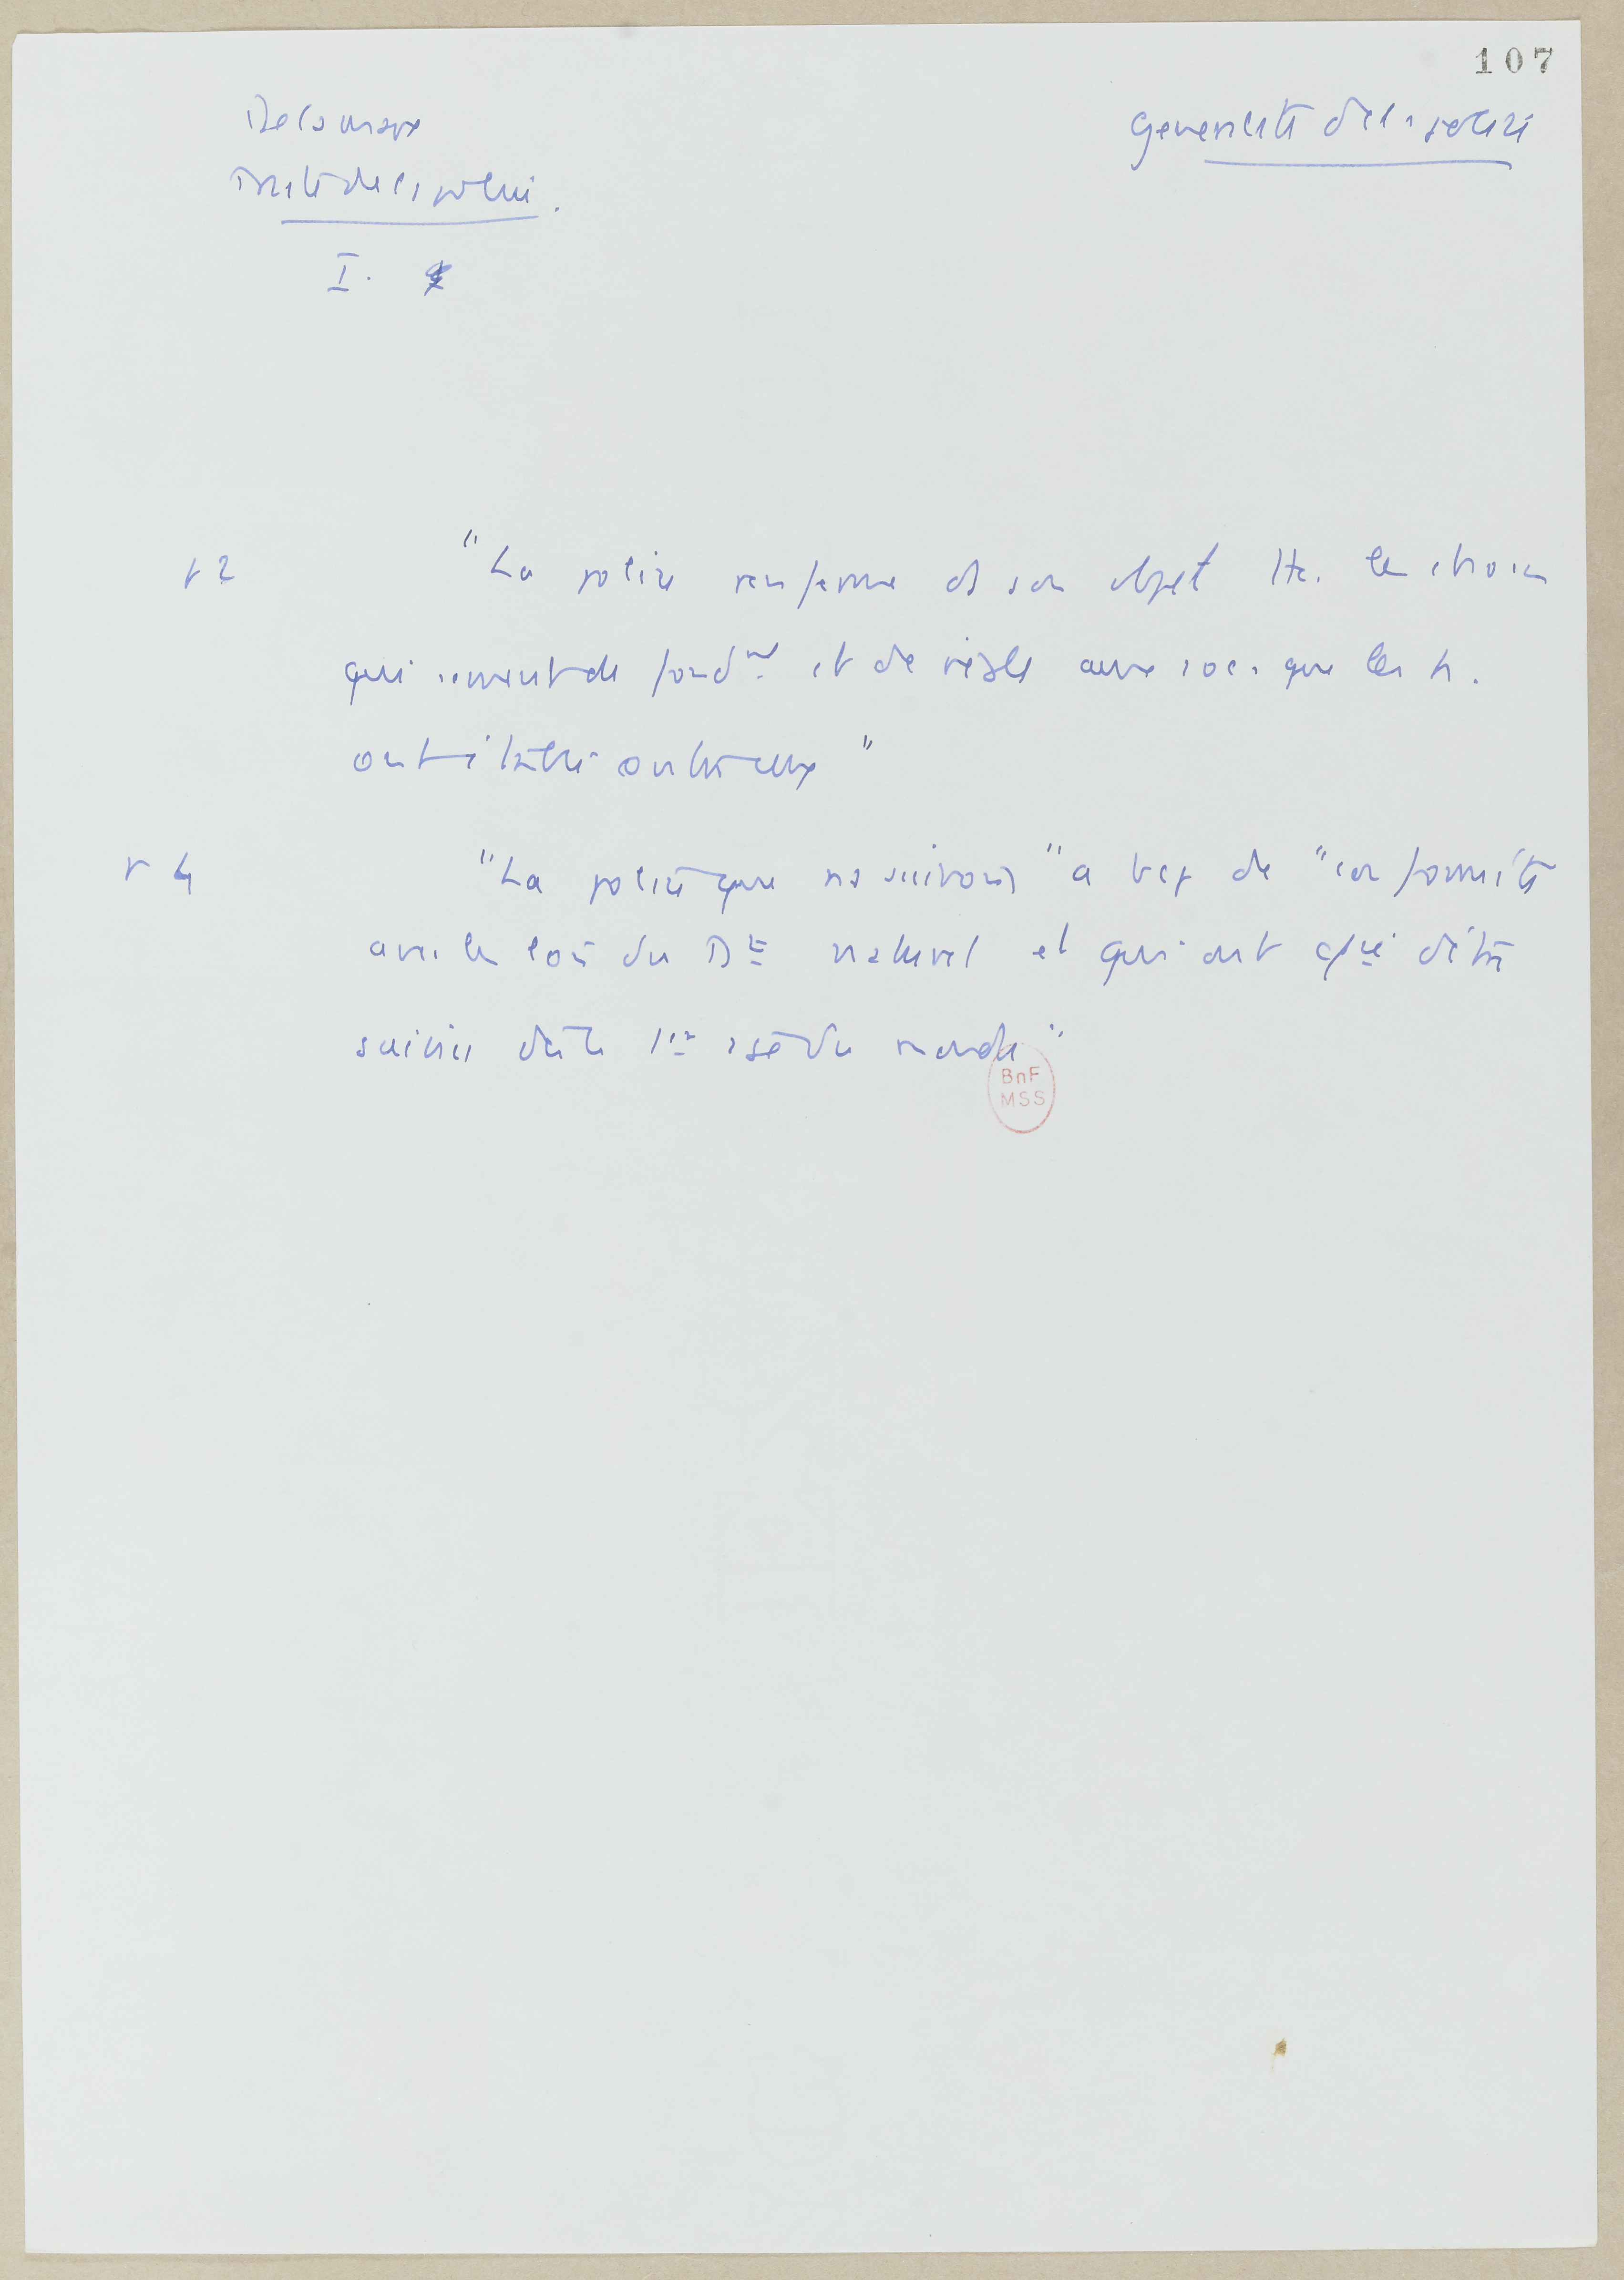 107
Delamare
Traité de la police.
Généralité de la police
I.
p 2
"La police renferme ds son objet ttes les choses
qui servent de fondmt et de règle aux soc. que les h.
ont établies entre eux"
p 4
"La police que ns suivons" a bcp de "conformité
avec les lois du Dt naturel et qui ont été
suivies dès le 1er âge du monde"
BnF
MSS